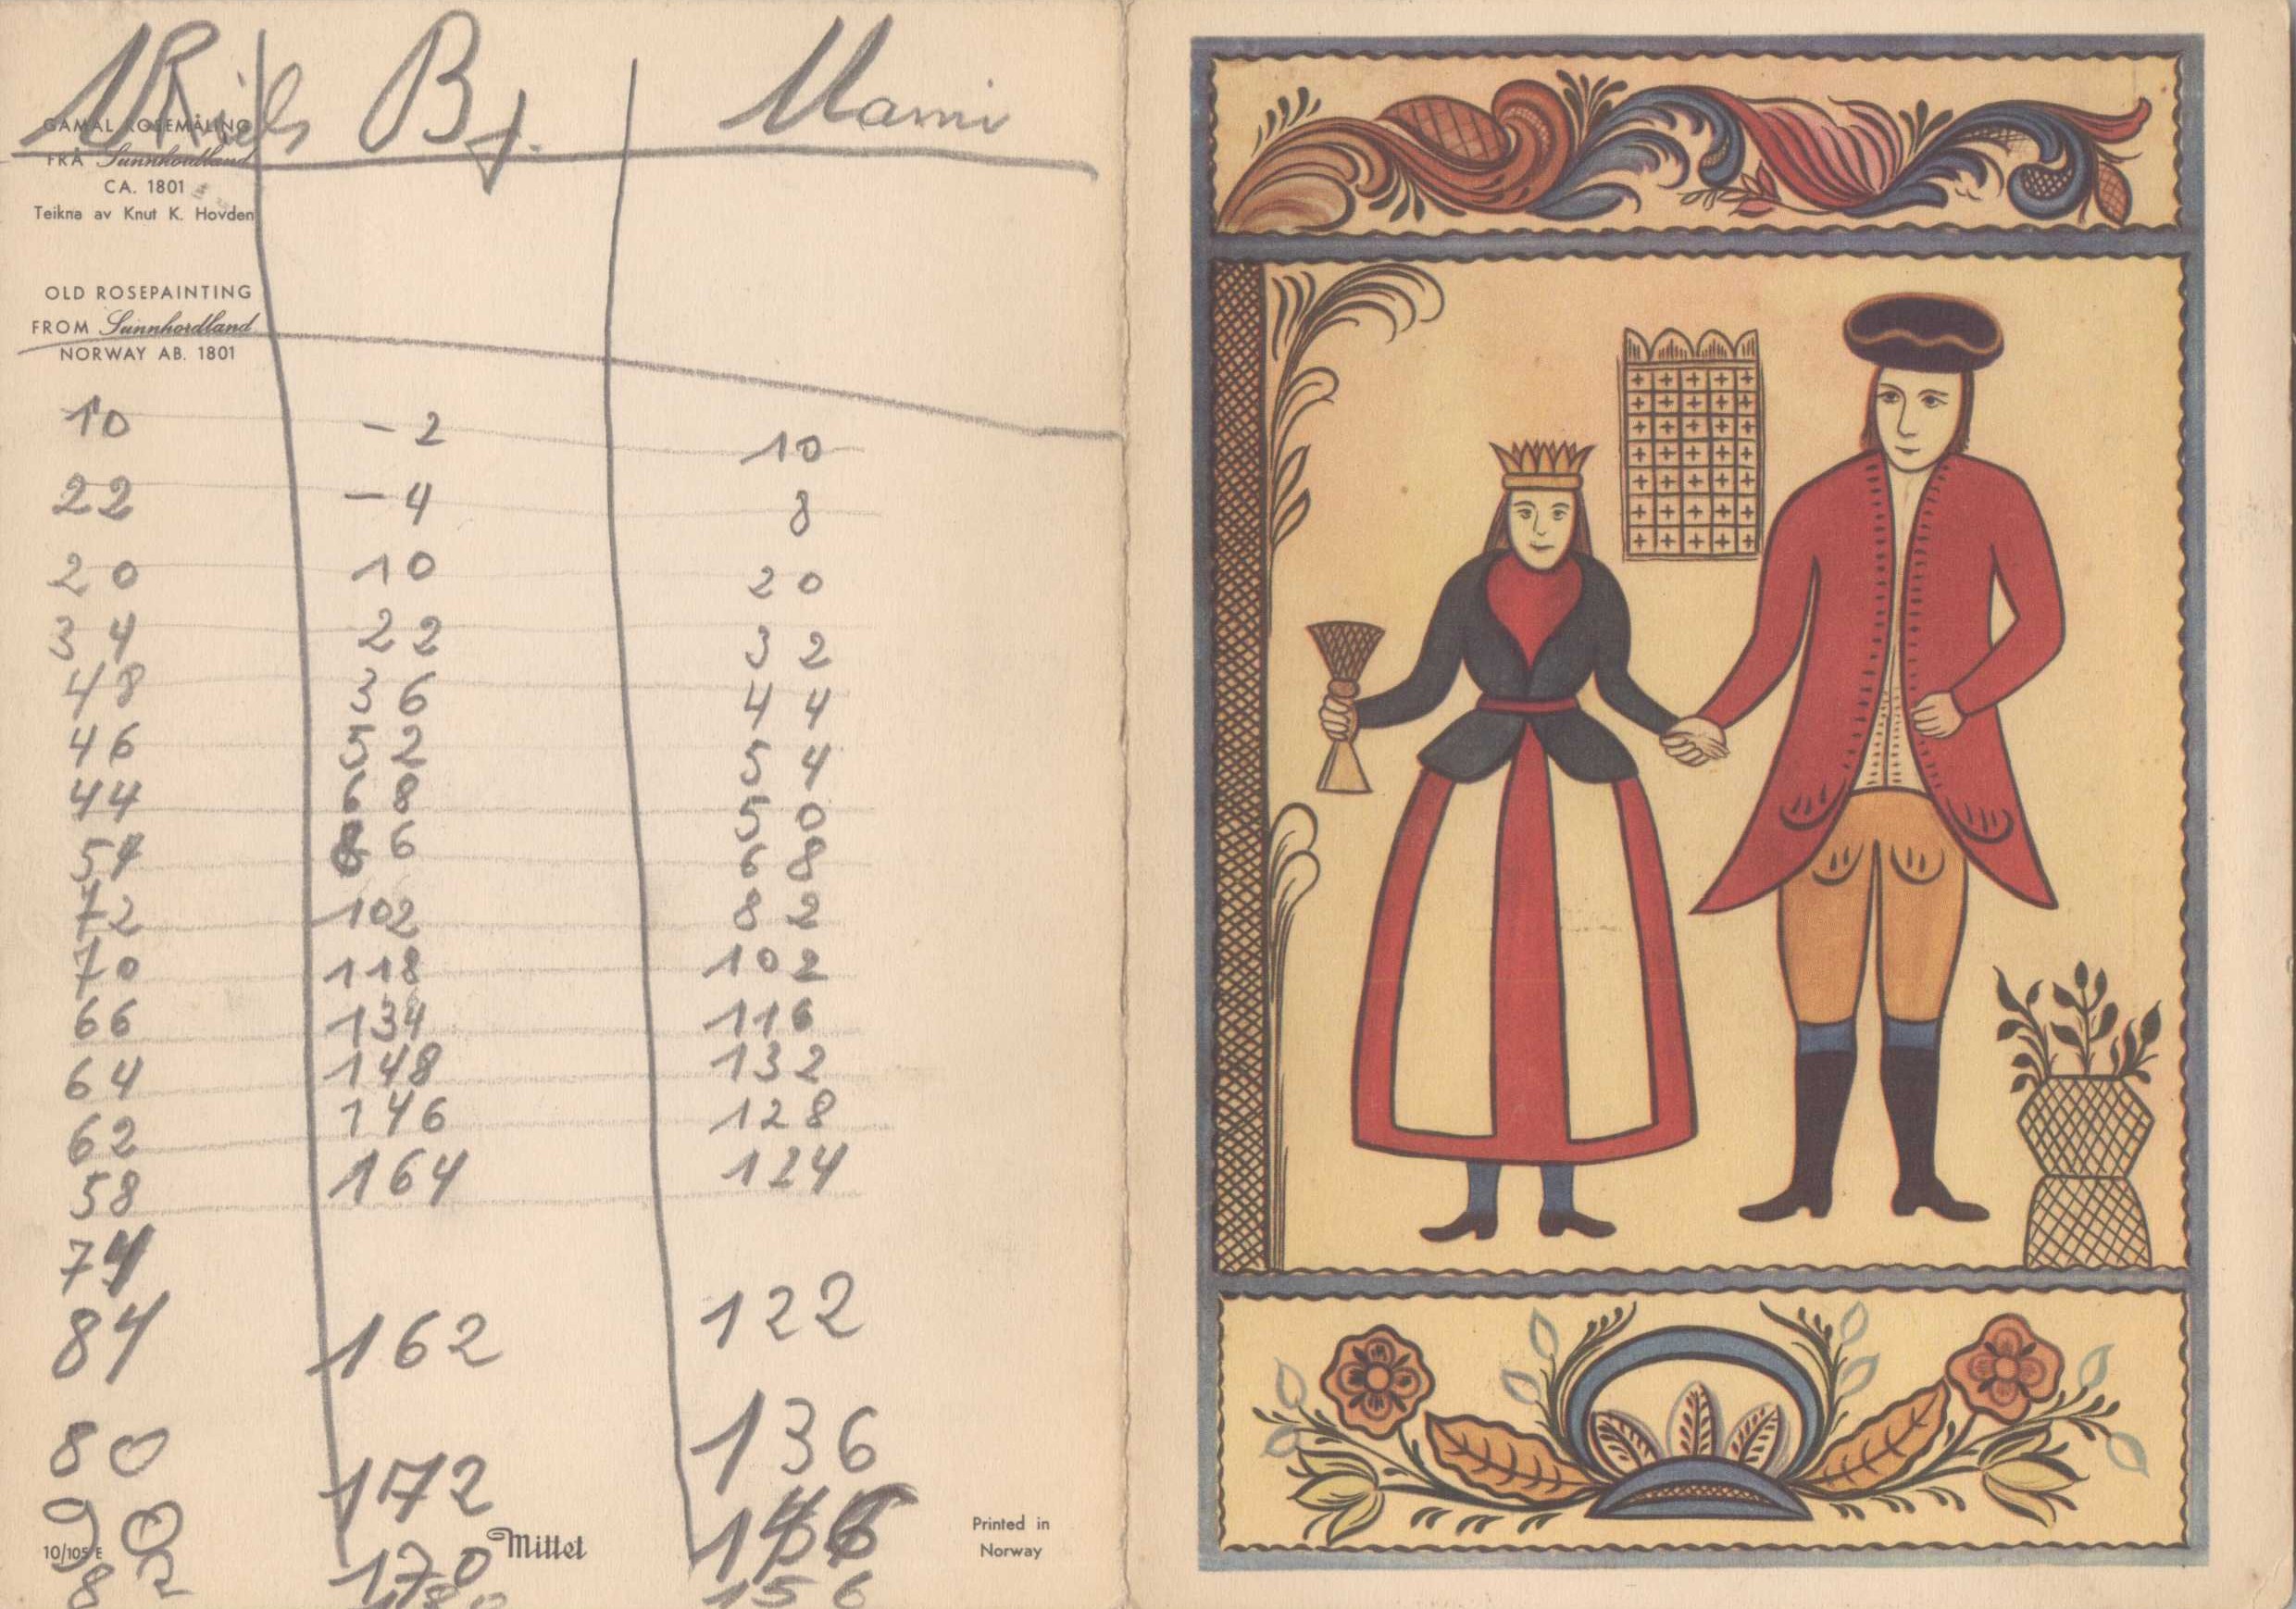 Niels Bj. Mami
GAMAL ROSEMÅLING
FRÅ Sunnhordland
CA. 1801
Teikna av Knut K. Hovden
OLD ROSEPAINTING
FROM Sunnhordland
NORWAY AB. 1801
10 -2 10
22 -4 8
20 10 20
34 22 32
48 36 44
46 52 54
44 68 50
54 86 68
72 102 82
70 118 102
66 134 116
64 148 132
62 146 128
58 164 124
74
84 162 122
80 172 136
90 170
82 180 156
10/105 E Mittet Printed in
Norway